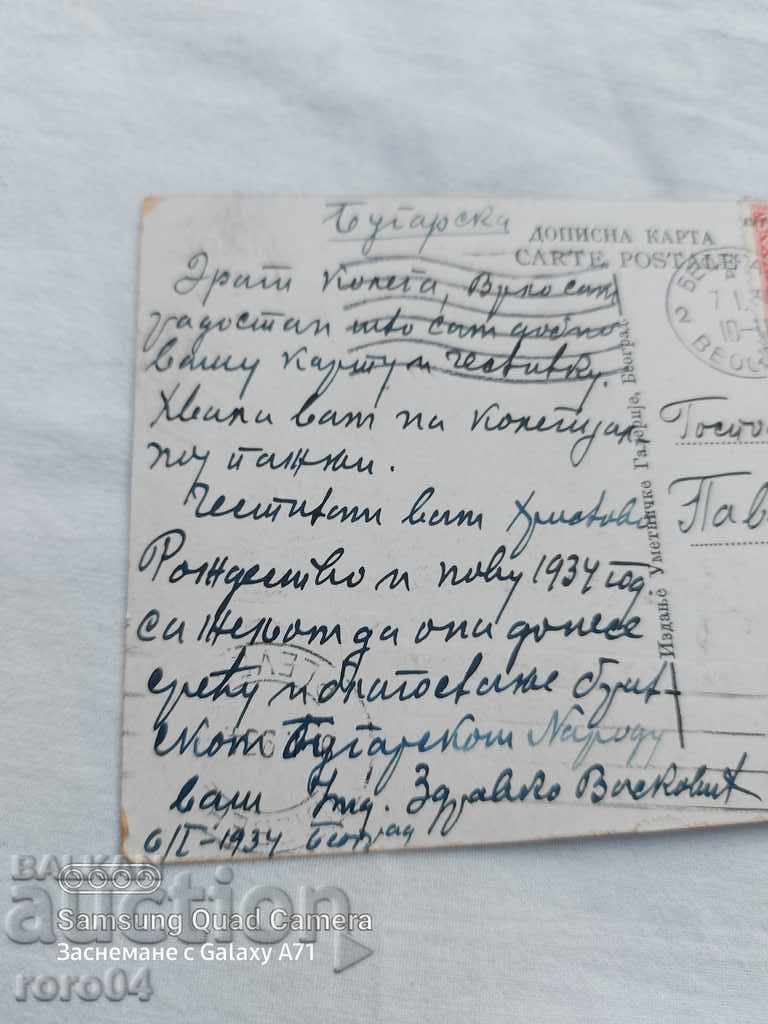 Бугарска
ДОПИСНА КАРТА
CARTE POSTALE
Драги Колега, Врло сам
радостан што сам добио
вашу карту и честитку.
Хвала вам на колегијал
ној пажњи.
Честитам вам Христово
Рождество и нову 1934 год
са жељом да она донесе
срећу и благосвање
ском Бугарском Народу
ваш Инд. Здравко
6/I-1934 Београд
Издање Уметничке Галерије, Београд
Госпо
Пав
2
BEOG
БАЛКАН
auction
roro04
Samsung Quad Camera
Заснемане с Galaxy A71